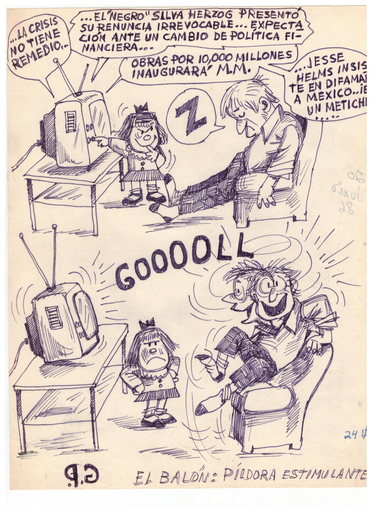 ...LA CRISIS
NO TIENE
REMEDIO...
...EL "NEGRO" SILVA HERZOG PRESENTÓ
SU RENUNCIA IRREVOCABLE... EXPECTA
CIÓN ANTE UN CAMBIO DE POLÍTICA FI-
NANCIERA...
OBRAS POR 10,000 MILLONES
INAUGURARÁ M.M.
...JESSE
HELMS INSIS
TE EN DIFAMA
A MÉXICO...¡E
UN METICHE
Z
20
Junio
86
GOOOOLL
G.P.
24
EL BALÓN: PÍLDORA ESTIMULANTE